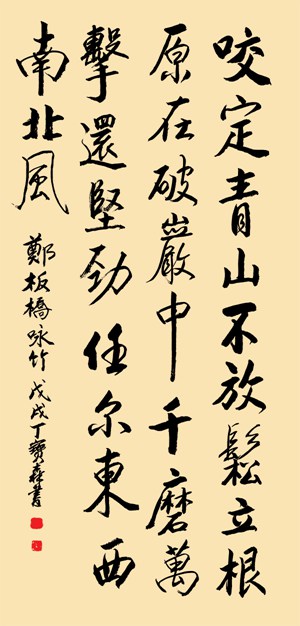 咬定青山不放鬆立根
原在破巖中千磨萬
擊還堅勁任尔東西
南北風
鄭板橋咏竹戊戌丁寶森書